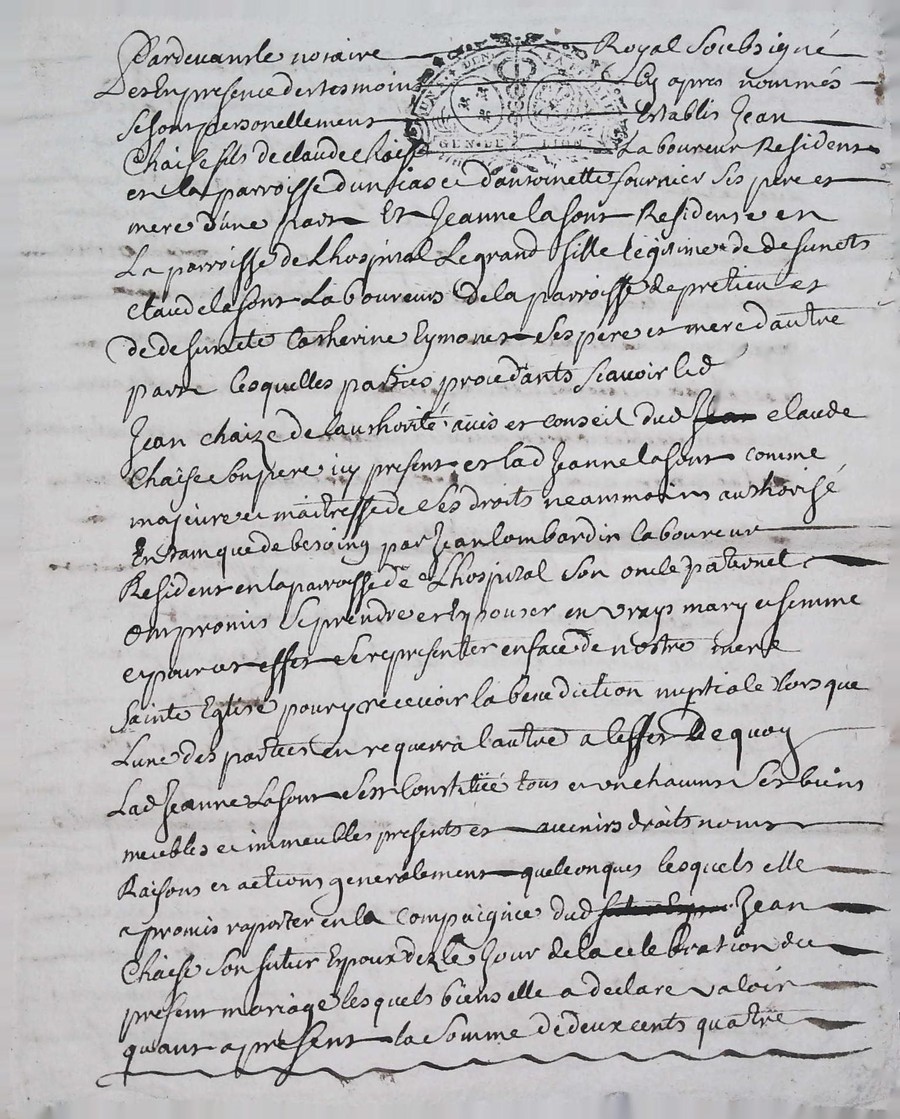 Pardevant le notaire Royal Soubsigné
Et En presence des tesmoins Cy apres nommés
se sont personellement Establis Jean
Chaise fils de claude chaise Laboureur Resident
en la parroisse d'unias et d'antoinette fournier ses pere et
mere d'une part Et Jeanne lafont Residente en
La parroisse de Lhospital Le grand fille legitime de defunt
claude lafont Laboureur de la parroisse de pretieu et
de defuncte Catherine Eymonet ses pere et mere d'autre
part lesquelles parties procedants scavoir led
Jean chaize de l'authorité avis et conseil dud claude
Chaise son pere icy present et lad Jeanne lafont comme
majeure et maitresse de ses droits neammoins authorisé
En tam que de besoing par Jean lombardin laboureur
Resident en la parroisse de Lhospital son oncle paternel
ont promis se prendre et Epouser en vrays mary et femme
et pour cet effet se representer en face de nostre mere
Sainte Eglise pour y recevoir la benediction nuptiale lors que
Lune des parties en requerra lautre a leffet De quoy
Lad Jeanne Lafont sest Constituée tous et un chacuns ses biens
meubles et immeubles presents et avenirs droits noms
Raisons et actions generalement quelconques lesquels elle
a promis raporter en la compaignie dud Jean
Chaise son futur Epoux dez le Jour de la celebration du
present mariage lesquels biens elle a declare valoir
quant a present la somme de deux cents quatre
GEN DE LION